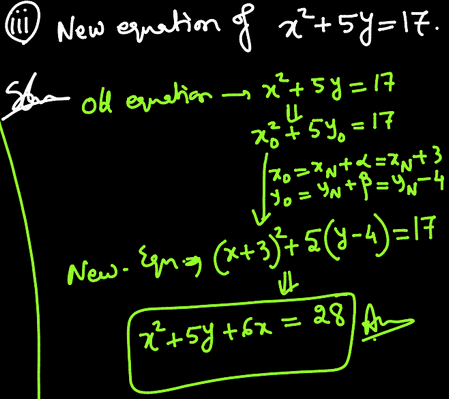 (iii) New equation of x²+5y=17.
Soln Old equation → x²+5y=17
⇓
x₀²+5y₀=17
x₀=x_N+α=x_N+3
y₀=y_N+β=y_N-4
New. Eqn → (x+3)²+5(y-4)=17
⇓
x²+5y+6x = 28 Ans